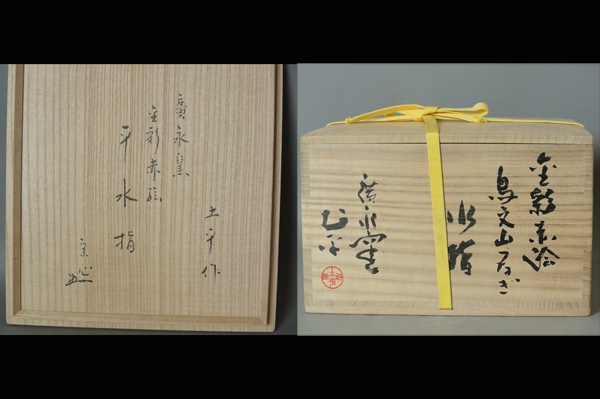 廣永窯
金彩赤絵
平水指
土平作
金彩赤絵
鳥文山つなぎ
水指
廣永窯
土平